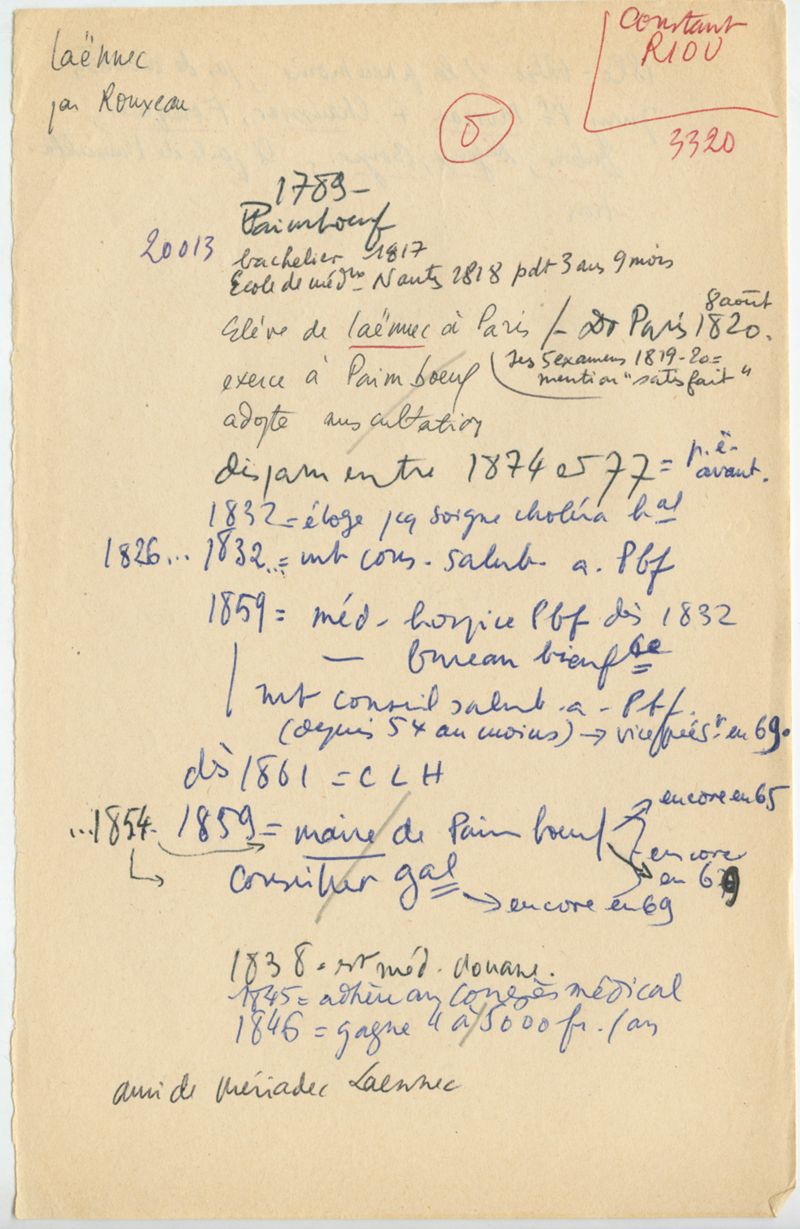 Laënnec
par Rouxeau
Constant
RIOU
5
3320
1789 -
Paimboeuf
20013
bachelier 1817
Ecole de méd^ne Nantes 1818 pdt 3 ans 9 mois
Elève de Laënnec à Paris / - Dr Paris 8 août 1820.
exerce à Paimboeuf
ses 5 examens 1819-20 =
mention "satisfait"
adopte auscultation
disparu entre 1874 et 77 = p. ê. avant.
1832 = éloge pcq soigne choléra h^al
1826... 1832... = mb cons. salub. a. Pbf
1859 = méd. hospice Pbf dès 1832
— bureau bienf^ce
mb conseil salub. a. Pbf.
(depuis 54 au moins) → vice prés^t en 69.
dès 1861 = C L H
...1854. 1859 = maire de Paimboeuf
encore en 65
encore
en 69
conseiller g^al → encore en 69
1838 = est méd. douane.
1845 = adhère au Congrès médical
1846 = gagne " à 5000 fr. / an
ami de Mériadec Laennec